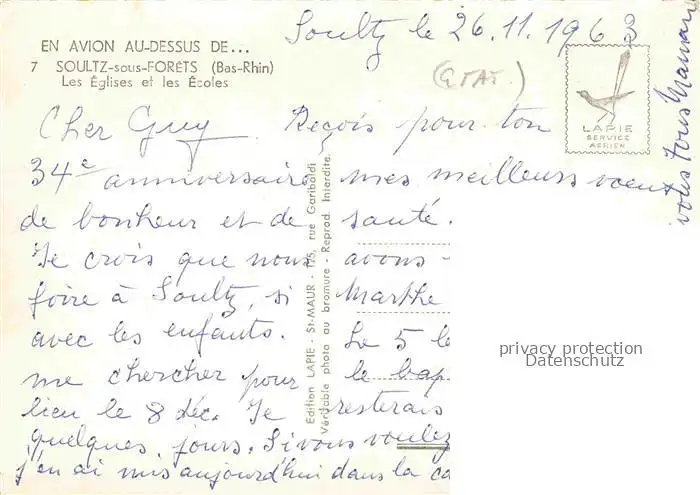 Soultz le 26.11.1963
EN AVION AU-DESSUS DE...
7 SOULTZ-sous-FORÊTS (Bas-Rhin)
Les Églises et les Écoles
LAPIE
SERVICE
AÉRIEN
Cher Guy. Reçois pour ton
34e anniversaire mes meilleurs voeux
de bonheur et de santé.
Je crois que nous avons
foire à Soultz, si Marthe
avec les enfants. Le 5 le
me chercher pour le bap
lieu le 8 déc. Je resterais
quelques jours. Si vous voulez
j'en ai mis aujourd'hui dans la ca
vous tous Maman
Edition LAPIE - St-MAUR - 175, rue Garibaldi
Véritable photo au bromure - Reprod. Interdite.
privacy protection
Datenschutz